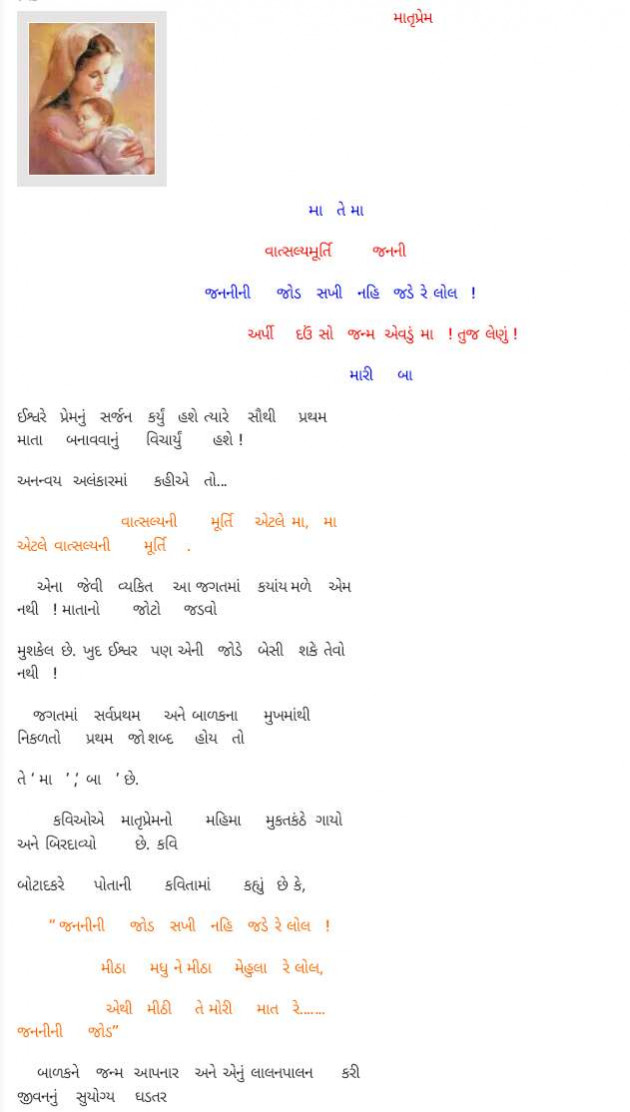 માતૃપ્રેમ
મા તે મા
વાત્સલ્યમૂર્તિ જનની
જનનીની જોડ સખી નહિ જડે રે લોલ !
અર્પી દઉં સો જન્મ એવડું મા ! તુજ લેણું !
મારી બા
ઈશ્વરે પ્રેમનું સર્જન કર્યું હશે ત્યારે સૌથી પ્રથમ
માતા બનાવવાનું વિચાર્યું હશે !
અનન્વય અલંકારમાં કહીએ તો...
વાત્સલ્યની મૂર્તિ એટલે મા, મા
એટલે વાત્સલ્યની મૂર્તિ .
એના જેવી વ્યકિત આ જગતમાં કયાંય મળે એમ
નથી ! માતાનો જોટો જડવો
મુશકેલ છે. ખુદ ઈશ્વર પણ એની જોડે બેસી શકે તેવો
નથી !
જગતમાં સર્વપ્રથમ અને બાળકના મુખમાંથી
નિકળતો પ્રથમ જો શબ્દ હોય તો
તે ‘ મા ’ ,‘ બા ’ છે.
કવિઓએ માતૃપ્રેમનો મહિમા મુકતકંઠે ગાયો
અને બિરદાવ્યો છે. કવિ
બોટાદકરે પોતાની કવિતામાં કહ્યું છે કે,
“ જનનીની જોડ સખી નહિ જડે રે લોલ !
મીઠા મધુ ને મીઠા મેહુલા રે લોલ,
એથી મીઠી તે મોરી માત રે.......
જનનીની જોડ”
બાળકને જન્મ આપનાર અને એનું લાલનપાલન કરી
જીવનનું સુયોગ્ય ઘડતર